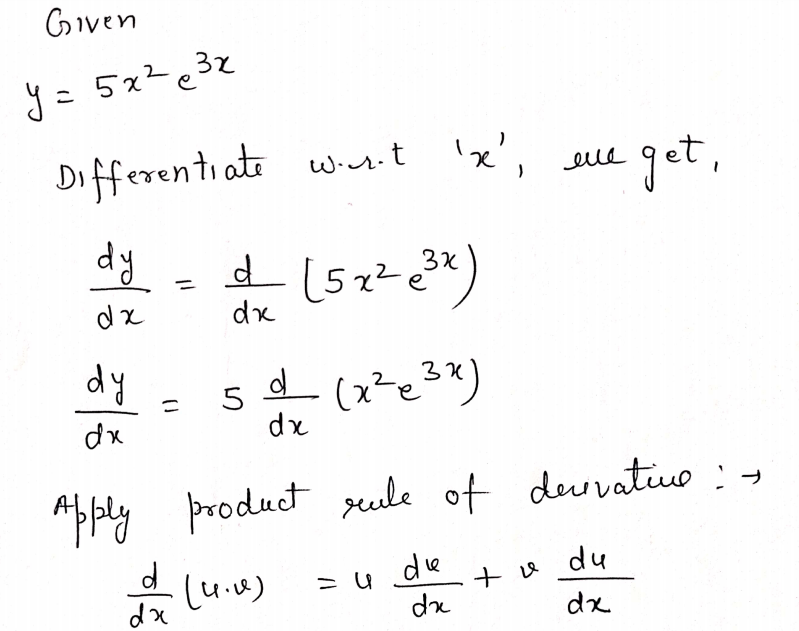 Given
y = 5x² e³ˣ
Differentiate w.r.t 'x', we get,
dy/dx = d/dx (5x² e³ˣ)
dy/dx = 5 d/dx (x² e³ˣ)
Apply product rule of derivative : →
d/dx (u.v) = u dv/dx + v du/dx